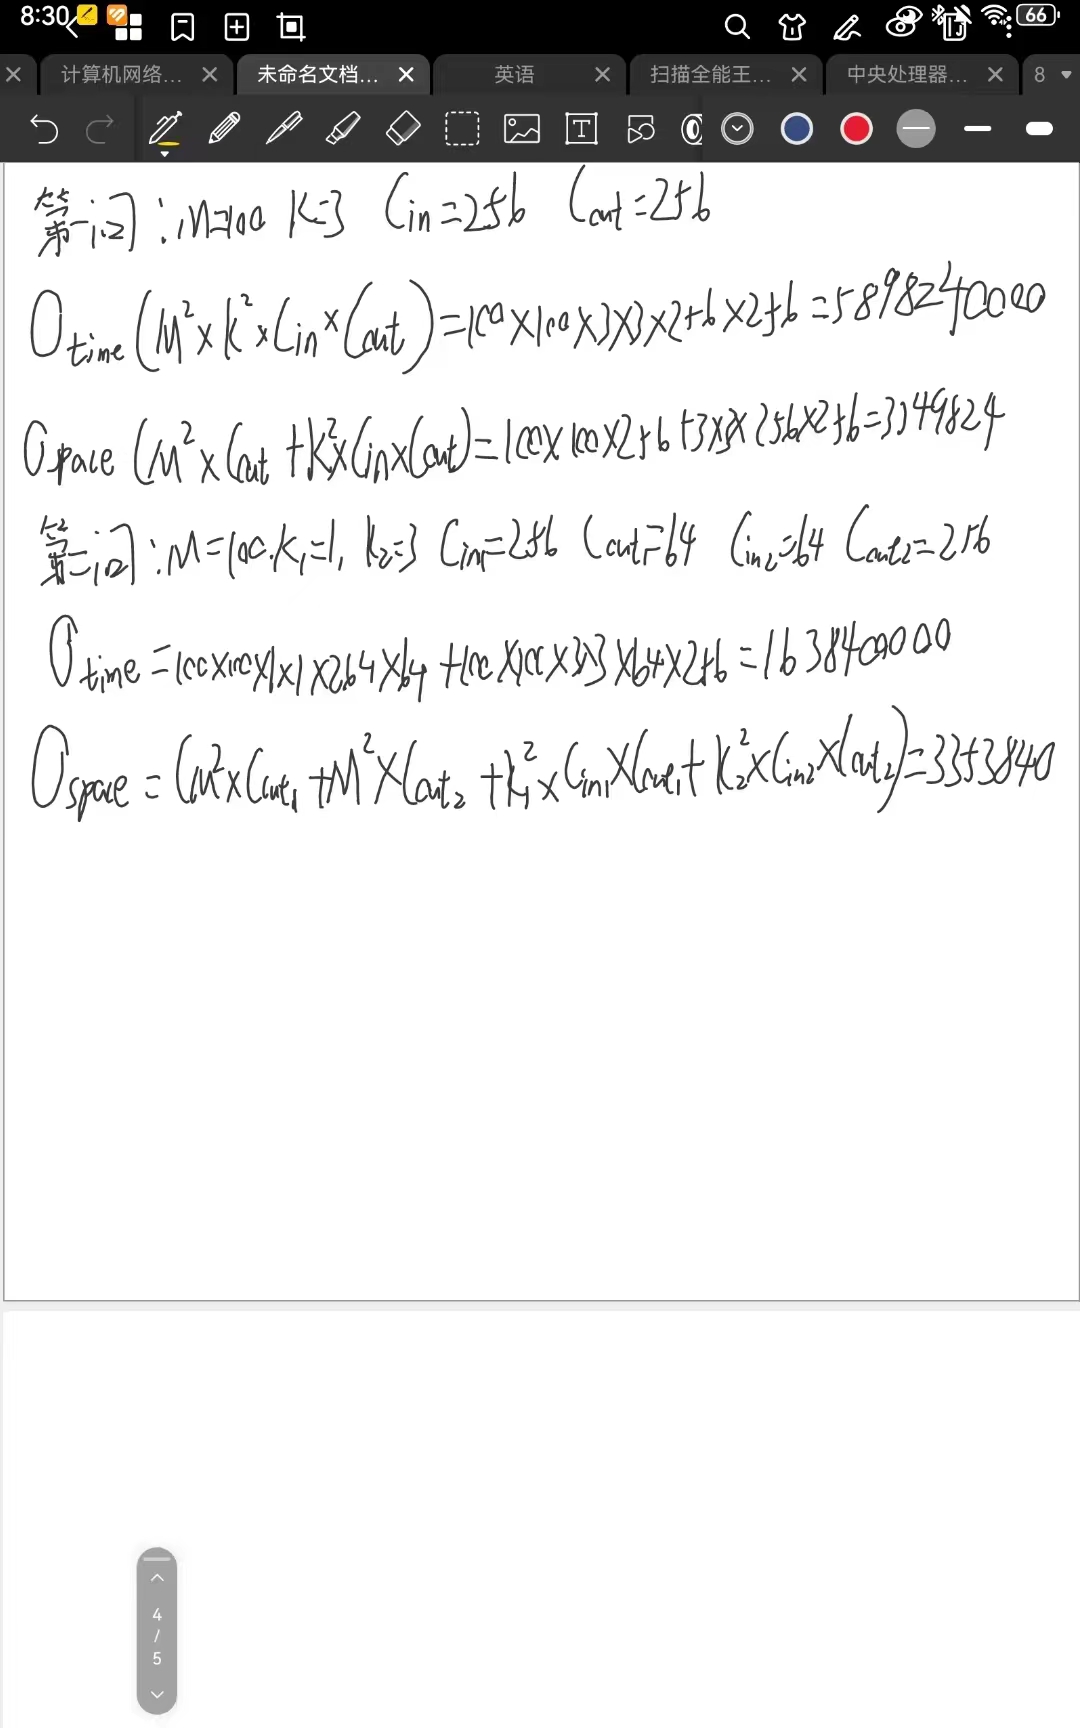 8:30 66
计算机网络... 未命名文档... 英语 扫描全能王... 中央处理器... 8
第一问：M=100 K=3 Cin=256 Cout=256
Otime(M²×K²×Cin×Cout)=100×100×3×3×256×256=5898240000
Ospace(M²×Cout+K²×Cin×Cout)=100×100×256+3×3×256×256=3149824
第二问：M=100.K₁=1, K₂=3 Cin₁=256 Cout₁=64 Cin₂=64 Cout₂=256
Otime=100×100×1×1×264×64+100×100×3×3×64×256=1638400000
Ospace=(M²×Cout₁+M²×Cout₂+K₁²×Cin₁×Cout₁+K₂²×Cin₂×Cout₂)=3353840
4
/
5